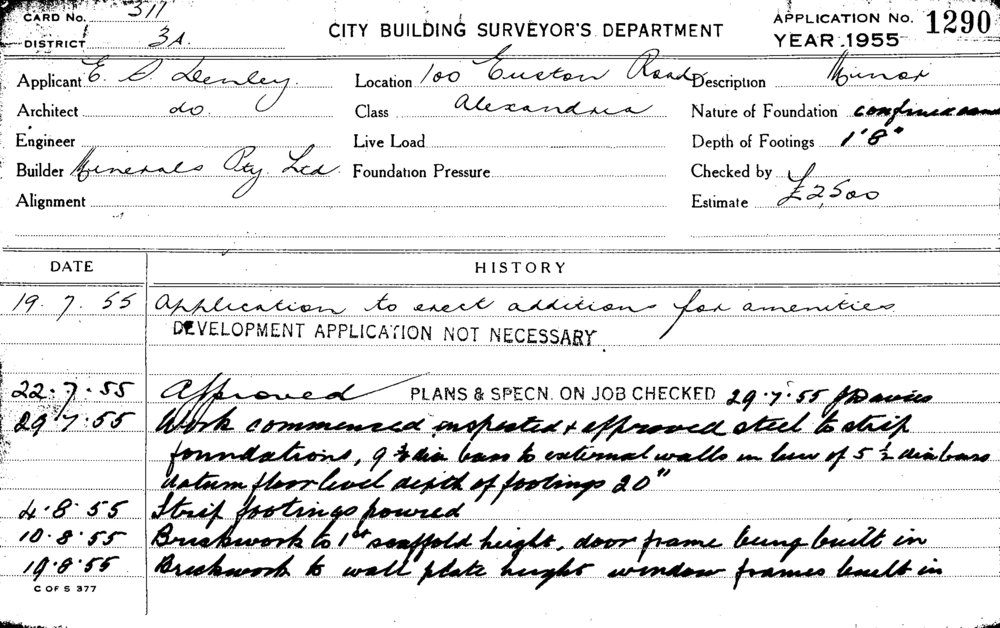 CARD No. 311
DISTRICT 3A.
CITY BUILDING SURVEYOR'S DEPARTMENT
APPLICATION No. 1290
YEAR 1955
Applicant E. S. Denley. Location 100 Euston Road Description Minor
Architect do Class Alexandria Nature of Foundation confined sand
Engineer Live Load Depth of Footings 1'8"
Builder Minerals Pty. Ltd. Foundation Pressure Checked by
Alignment Estimate £2,500
DATE HISTORY
19. 7. 55 Application to erect additions for amenities
DEVELOPMENT APPLICATION NOT NECESSARY
22.7.55 Approved PLANS & SPECN. ON JOB CHECKED 29.7.55 J Davies
29.7.55 Work commenced inspected & approved steel to strip
foundations, 9 3/8 dia bars to external walls in lieu of 5 1/2 dia bars
datum floor level depth of footings 20"
4.8.55 Strip footings poured
10.8.55 Brickwork to 1st scaffold height, door frame being built in
19.8.55 Brickwork to wall plate height window frames built in
C OF S 377